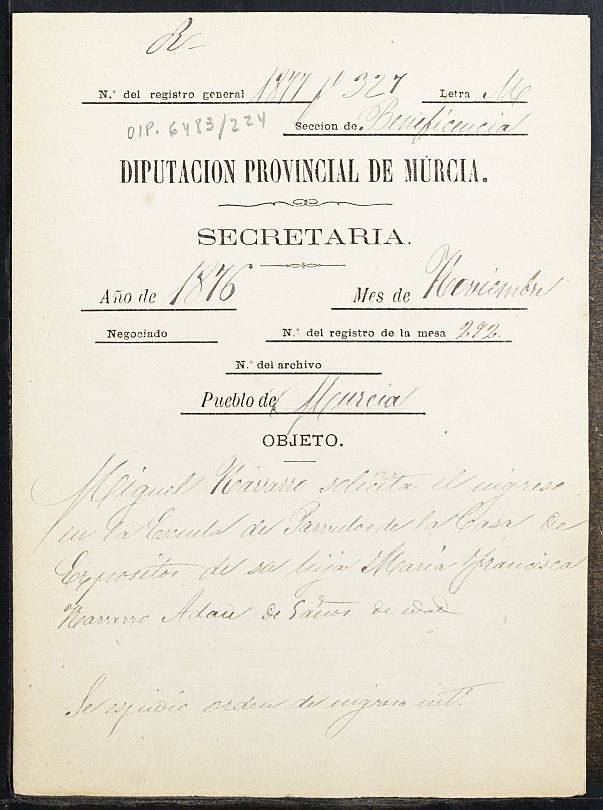 R-
N.º del registro general 1877 fº 327 Letra M
DIP. 6483/224
Seccion de Beneficencia
DIPUTACION PROVINCIAL DE MÚRCIA.
SECRETARIA.
Año de 1876 Mes de Noviembre
Negociado N.º del registro de la mesa 292.
N.º del archivo
Pueblo de Murcia
OBJETO.
Miguel Navarro solicita el ingreso
en la Escuela de Parvulos de la Casa de
Expositos de su hija María Francisca
Navarro Adan de 5 años de edad
Se espidió orden de ingreso intº.